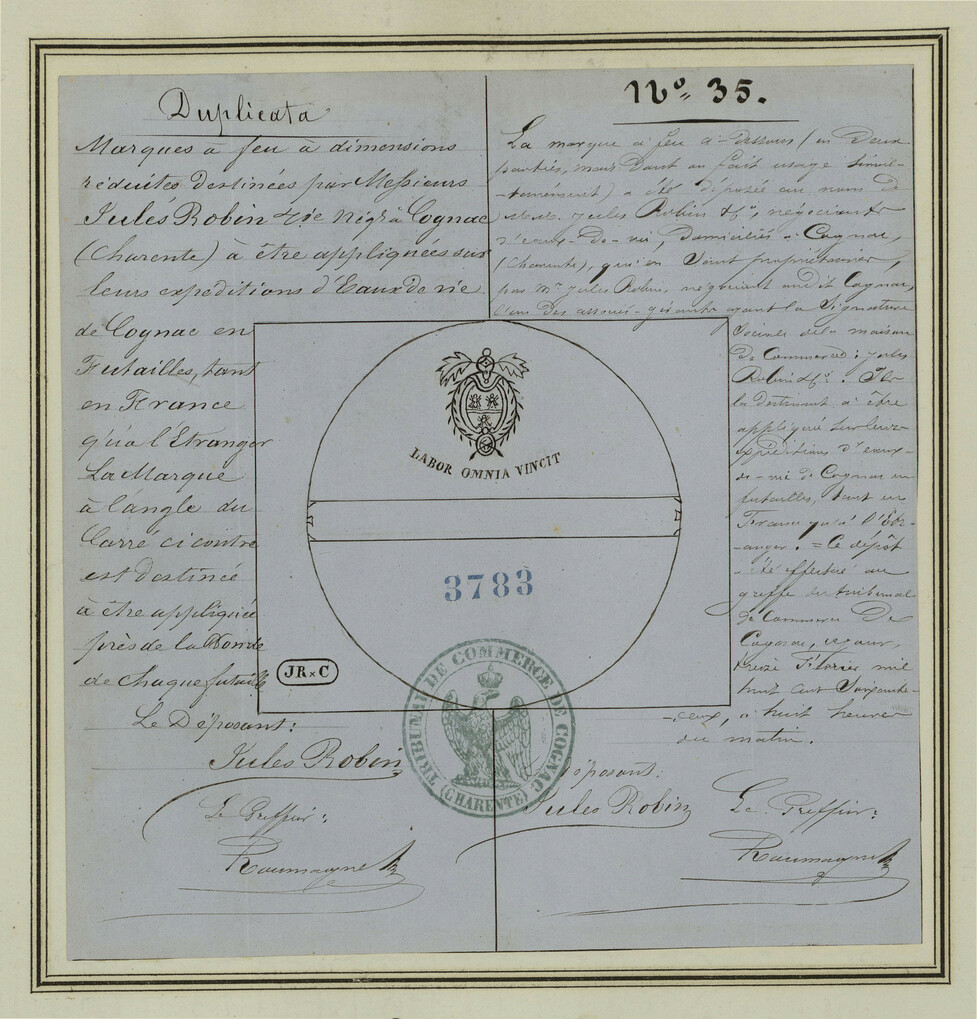 Duplicata
Marques à feu à dimensions
réduites destinées par Messieurs
Jules Robin & Cie Négts à Cognac
(Charente) à être appliquées sur
leurs expeditions d'Eaux de vie
de Cognac en
Futailles, tant
en France
qu'à l'Etranger
La Marque
à l'angle du
Carré ci contre
est destinée
à être appliquée
près de la Bonde
de chaque futaille
Le Déposant:
Jules Robin
Le Greffier:
Roumagne
No 35.
La marque à feu ci-dessous (en deux
parties, mais dont on fait usage simul-
-tanément) a été déposée au nom de
M.M. Jules Robin & Cie, négociants
d'eaux-de-vie, domiciliés à Cognac,
(Charente), qui en sont propriétaires,
par Mr Jules Robin, négociant audit Cognac,
l'un des associés-gérants ayant la signature
sociale de la maison
de Commerce: Jules
Robin & Cie. Ils
la destinent à être
appliquée sur leurs
expéditions d'eaux-
de-vie de Cognac en
futailles, tant en
France qu'à l'Etr-
-anger. = Ce dépôt
a été effectué au
greffe du tribunal
de Commerce de
Cognac, ce jour,
treize Février mil
huit cent soixante-
-deux, à huit heures
du matin.
déposant:
Jules Robin
Le Greffier:
Roumagne
LABOR OMNIA VINCIT
3783
JR x C
TRIBUNAL DE COMMERCE DE COGNAC
(CHARENTE)